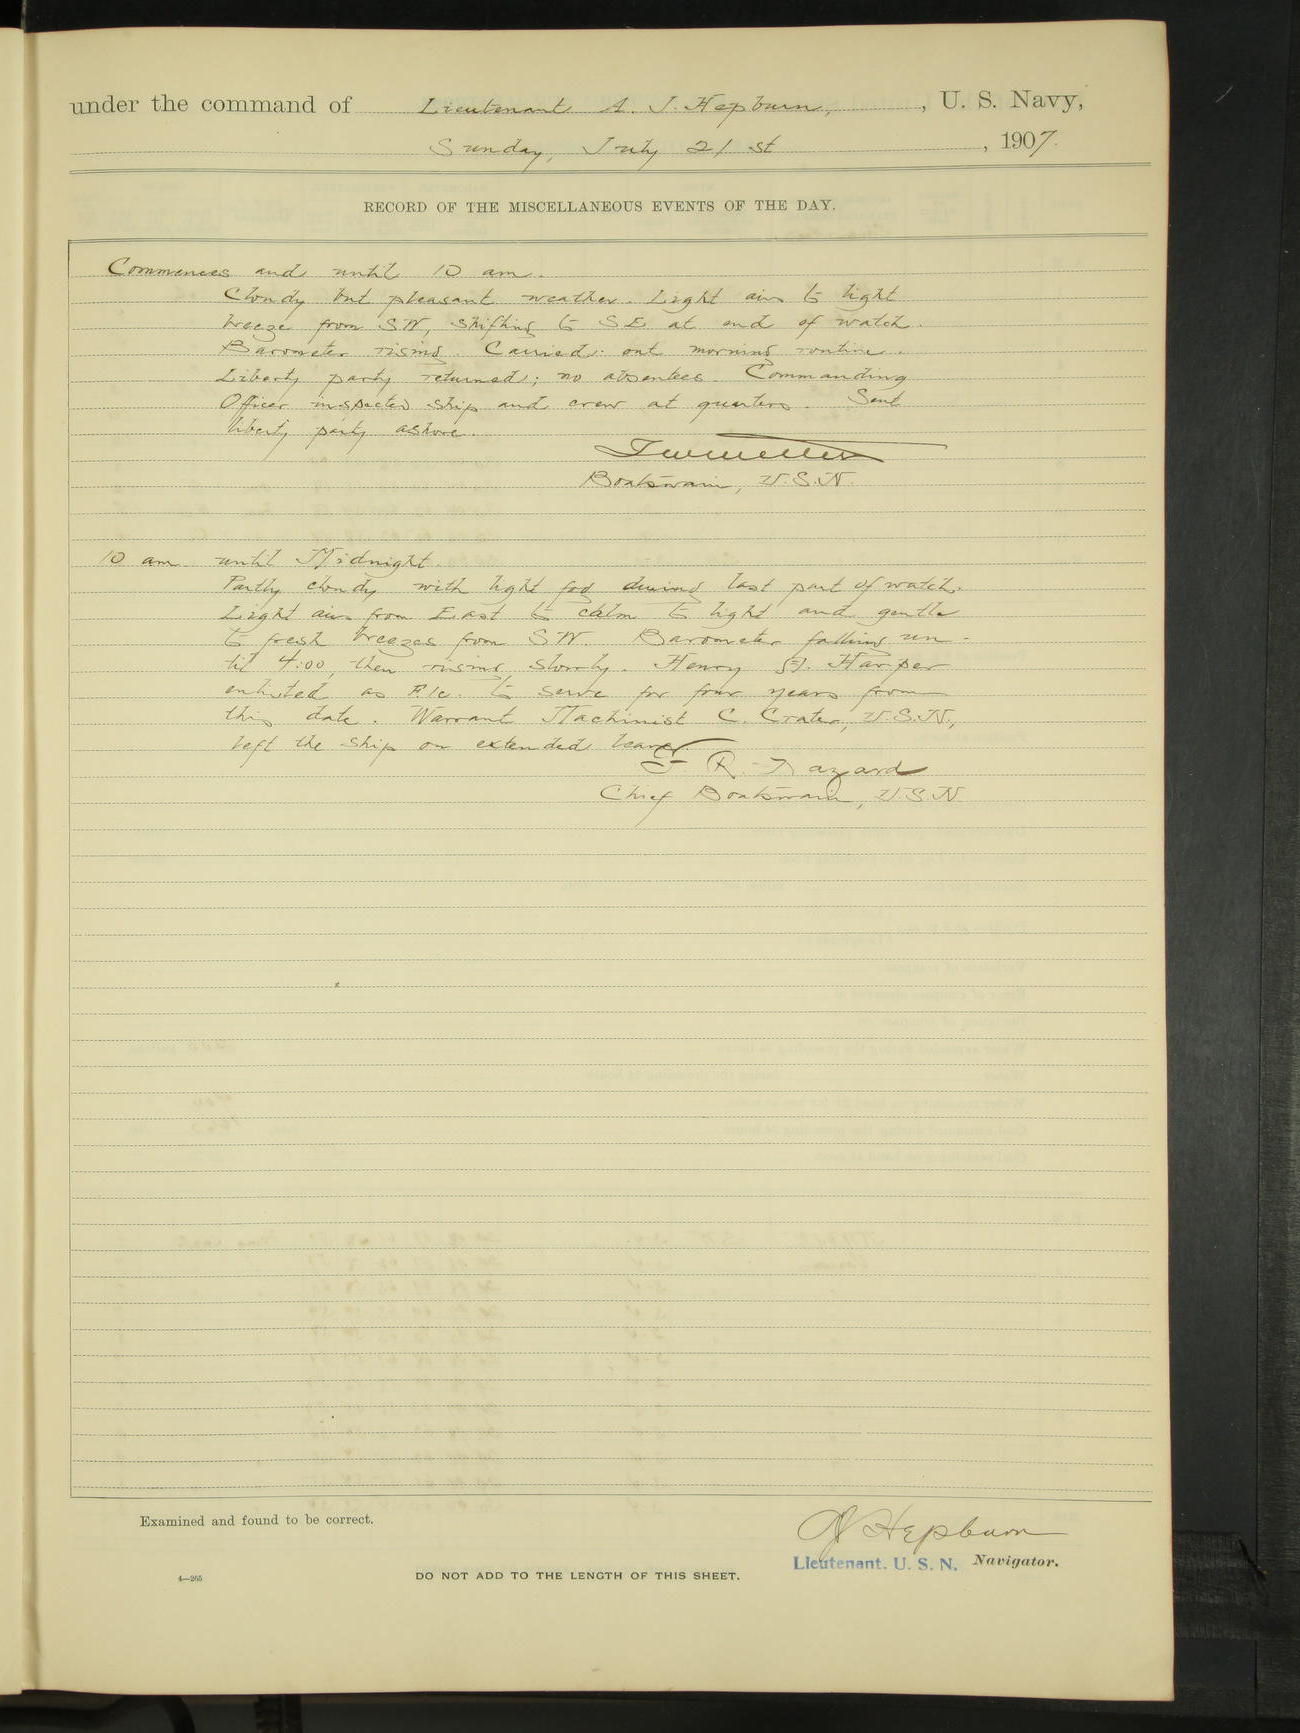 under the command of Lieutenant A. J. Hepburn, , U. S. Navy,
Sunday, July 21st , 1907.
RECORD OF THE MISCELLANEOUS EVENTS OF THE DAY.
Commences and until 10 am.
Cloudy but pleasant weather. Light airs to light
breeze from SW, shifting to SE at end of watch.
Barometer rising. Carried out morning routine.
Liberty party returned; no absentees. Commanding
Officer inspected ship and crew at quarters. Sent
liberty party ashore.
Boatswain, U.S.N.
10 am until Midnight.
Partly cloudy with light fog during last part of watch.
Light airs from East to calm to light and gentle
to fresh breezes from SW. Barometer falling un-
til 4:00, then rising slowly. Henry Harper
enlisted as F.1c. to serve for four years from
this date. Warrant Machinist C. Crater, U.S.N.,
left the ship on extended leave.
Chief Boatswain, U.S.N.
Examined and found to be correct.
AJ Hepburn
Lieutenant. U. S. N. Navigator.
4—265
DO NOT ADD TO THE LENGTH OF THIS SHEET.